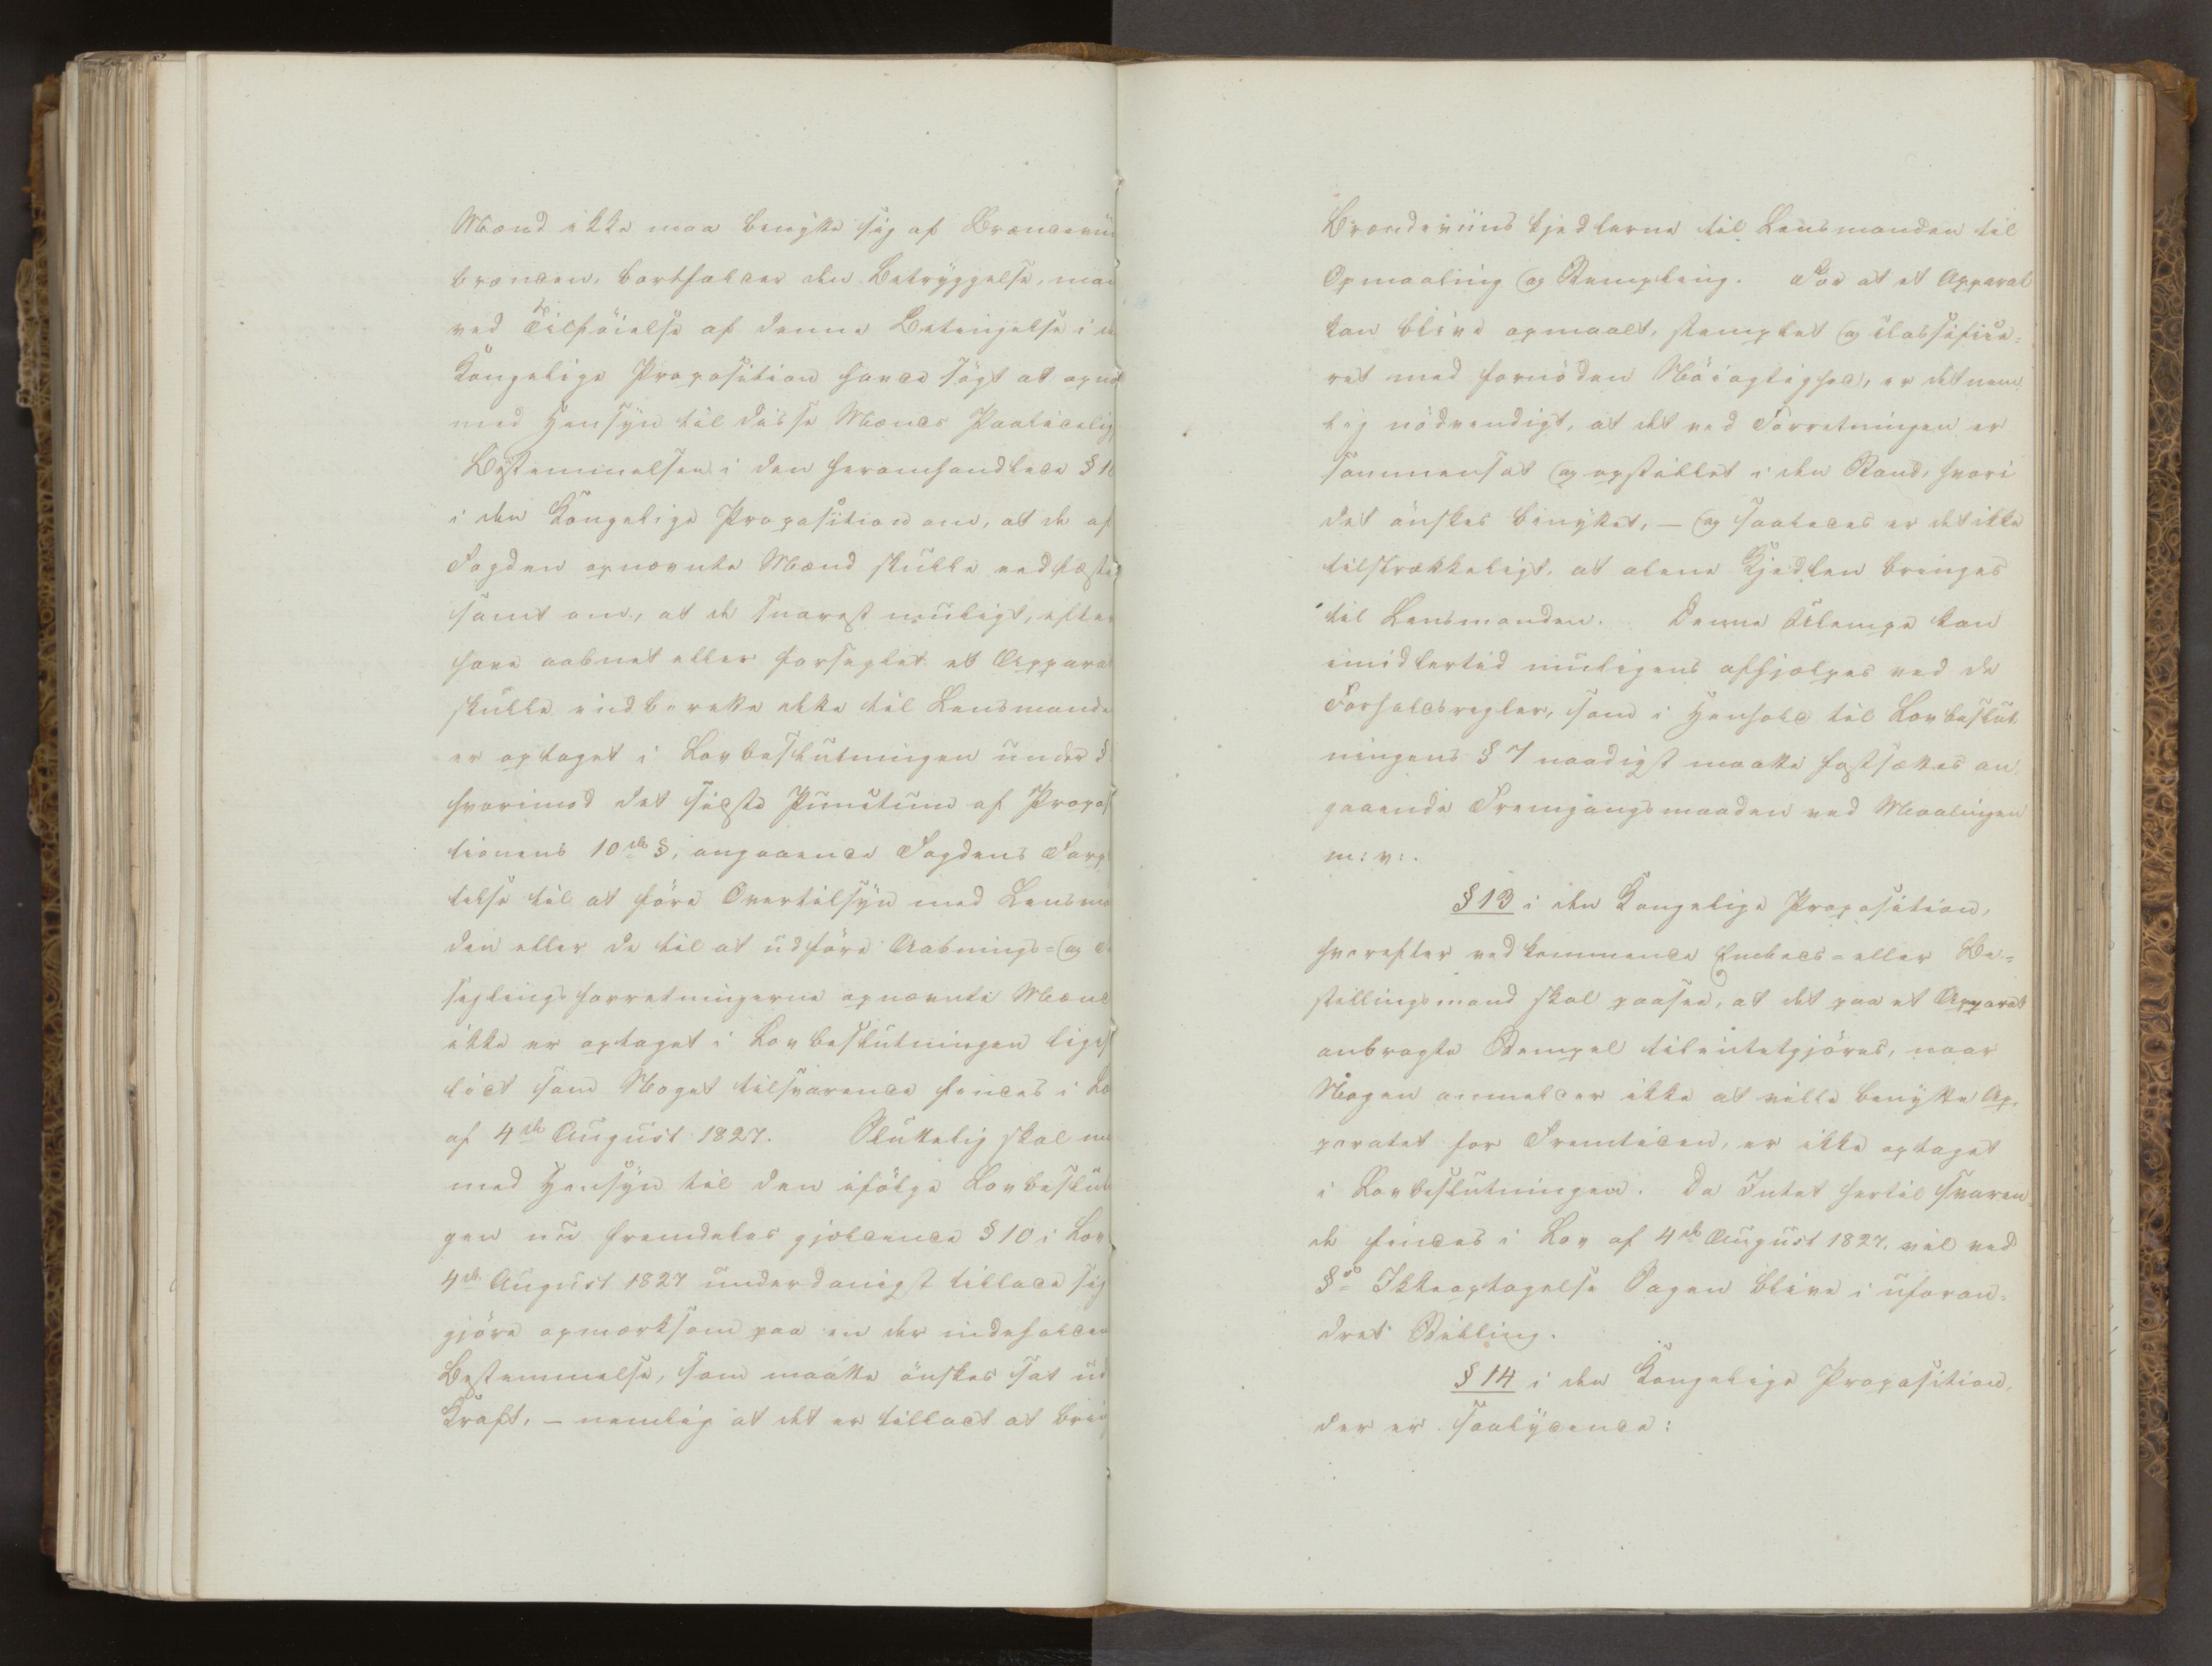 Mænd ikke maa benytte sig af Brændeviin
brænden, bortfalder den Betryggelse, man
ved Tilföielse af denne Betingelse i de
Kongelige Proposition havde sögt at opnaa
med Hensyn til disse Mænds Paalidelig
Bestemmelsen i den heromhandlede § 10
i den Kongelige Proposition om, at de af
Fogden opnævnte Mænd skulle eedfæstes
samt om, at de snarest muligt, efter
have aabnet eller forseglet et Apparat
skulle indberette dette til Lensmanden
er optaget i Lovbeslutningen under §
hvorimod det sidste Punctum af Proposi
tionens 10de §, angaaende Fogdens Forp
telse til at före Overtilsyn med Lensma
den eller de til at udföre Aabnings- og
seglingsforretningerne opnævnte Mænd
ikke er optaget i Lovbeslutningen liges
lidt som Noget tilsvarende findes i Lo
af 4de August 1827. Sluttelig skal
med Hensyn til den ifölge Lovbeslut
gen nu fremdeles gjeldende § 10 i Lov
4de August 1827 underdanigst tillade sig
gjöre opmærksom paa en der indeholden
Bestemmelse, som maatte önskes sat ud
Kraft, – nemlig at det er tilladt at brin
Brændeviinskjedlerne til Lensmanden til
Opmaaling og Stempling. For at et Apparat
kan blive opmaalt, stemplet og classifice-
ret med fornöden Nöiagtighed, er det nem
lig nödvendigt, at det ved Forretningen er
sammensat og opstillet i den Stand, hvori
det önskes benyttet, – og saaledes er det ikke
tilstrækkeligt, at alene Kjedlen bringes
til Lensmanden. Denne Ulempe kan
imidlertid muligens afhjælpes ved de
Forholdsregler, som i Henhold til Lovbeslut
ningens § 7 naadigst maatte fastsættes an
gaaende Fremgangsmaaden ved Maalingen
m: v:.
§ 13 i den Kongelige Proposition,
hvorefter vedkommende Embeds- eller Be-
stillingsmand skal paasee, at det paa et Apparat
anbragte Stempel tilintetgjöres, naar
Nogen anmelder ikke at ville benytte Ap.
paratet for Fremtiden, er ikke optaget
i Lovbeslutningen. Da Intet hertil svaren
de findes i Lov af 4de August 1827, vil ved
§s Ikkeoptagelse Sagen blive i uforan-
dret Stilling.
§ 14 i den Kongelige Proposition,
der er saalydende: